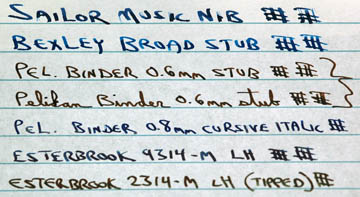 SAILOR MUSIC NIB
BEXLEY BROAD STUB
PEL. BINDER 0.6mm STUB
Pelikan Binder 0.6mm stub
PEL. BINDER 0.8mm CURSIVE ITALIC
ESTERBROOK 9314-M LH
ESTERBROOK 2314-M LH (TIPPED)